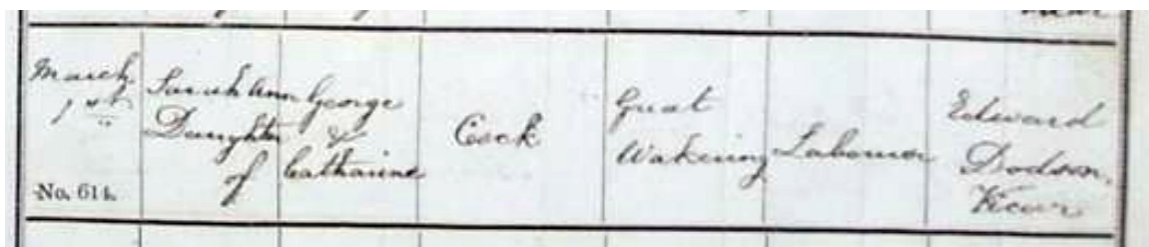 March
1st
No. 614.
Sarah Ann
Daughter
of
George
&
Catharine
Cock
Great
Wakering
Labourer
Edward
Dodson.
Vicar